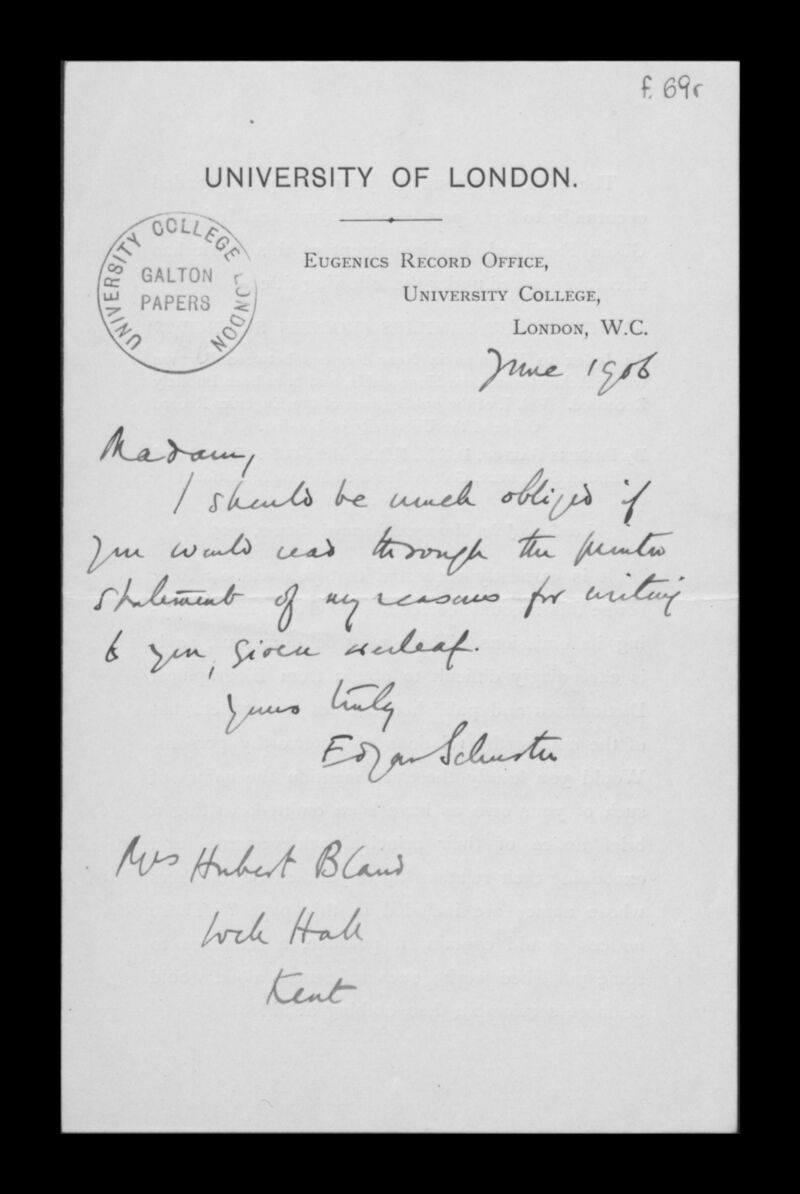 f. 69r
UNIVERSITY OF LONDON.
UNIVERSITY COLLEGE LONDON
GALTON
PAPERS
EUGENICS RECORD OFFICE,
UNIVERSITY COLLEGE,
LONDON, W.C.
June 1906
Madam,
I should be much obliged if
you would read through the printed
statement of my reasons for writing
to you, given overleaf.
Yours truly
Edgar Schuster
Mrs Hubert Bland
Hall
Kent